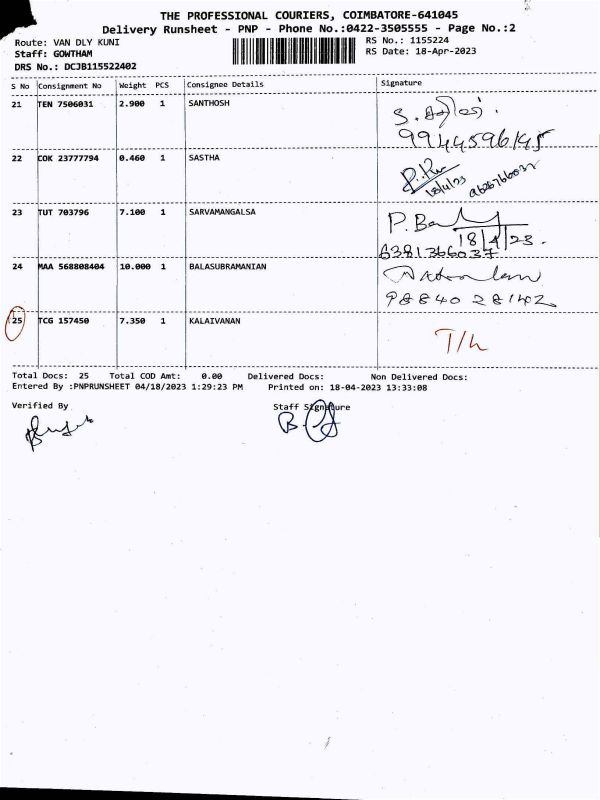 THE PROFESSIONAL COURIERS, COIMBATORE-641045
Delivery Runsheet - PNP - Phone No.:0422-3505555 - Page No.:2
Route: VAN DLY KUNI
RS No.: 1155224
Staff: GOWTHAM
RS Date: 18-Apr-2023
DRS No.: DCJB115522402
S No Consignment No Weight PCS Consignee Details Signature
21 TEN 7506031 2.900 1 SANTHOSH
9944596145
22 COK 23777794 0.460 1 SASTHA
18/4/23
23 TUT 703796 7.100 1 SARVAMANGALSA
18/4/23.
6381366037
24 MAA 568808404 10.000 1 BALASUBRAMANIAN
98840 28142
25 TCG 157450 7.350 1 KALAIVANAN
T/h
Total Docs: 25 Total COD Amt: 0.00 Delivered Docs: Non Delivered Docs:
Entered By :PNPRUNSHEET 04/18/2023 1:29:23 PM Printed on: 18-04-2023 13:33:08
Verified By Staff Signature